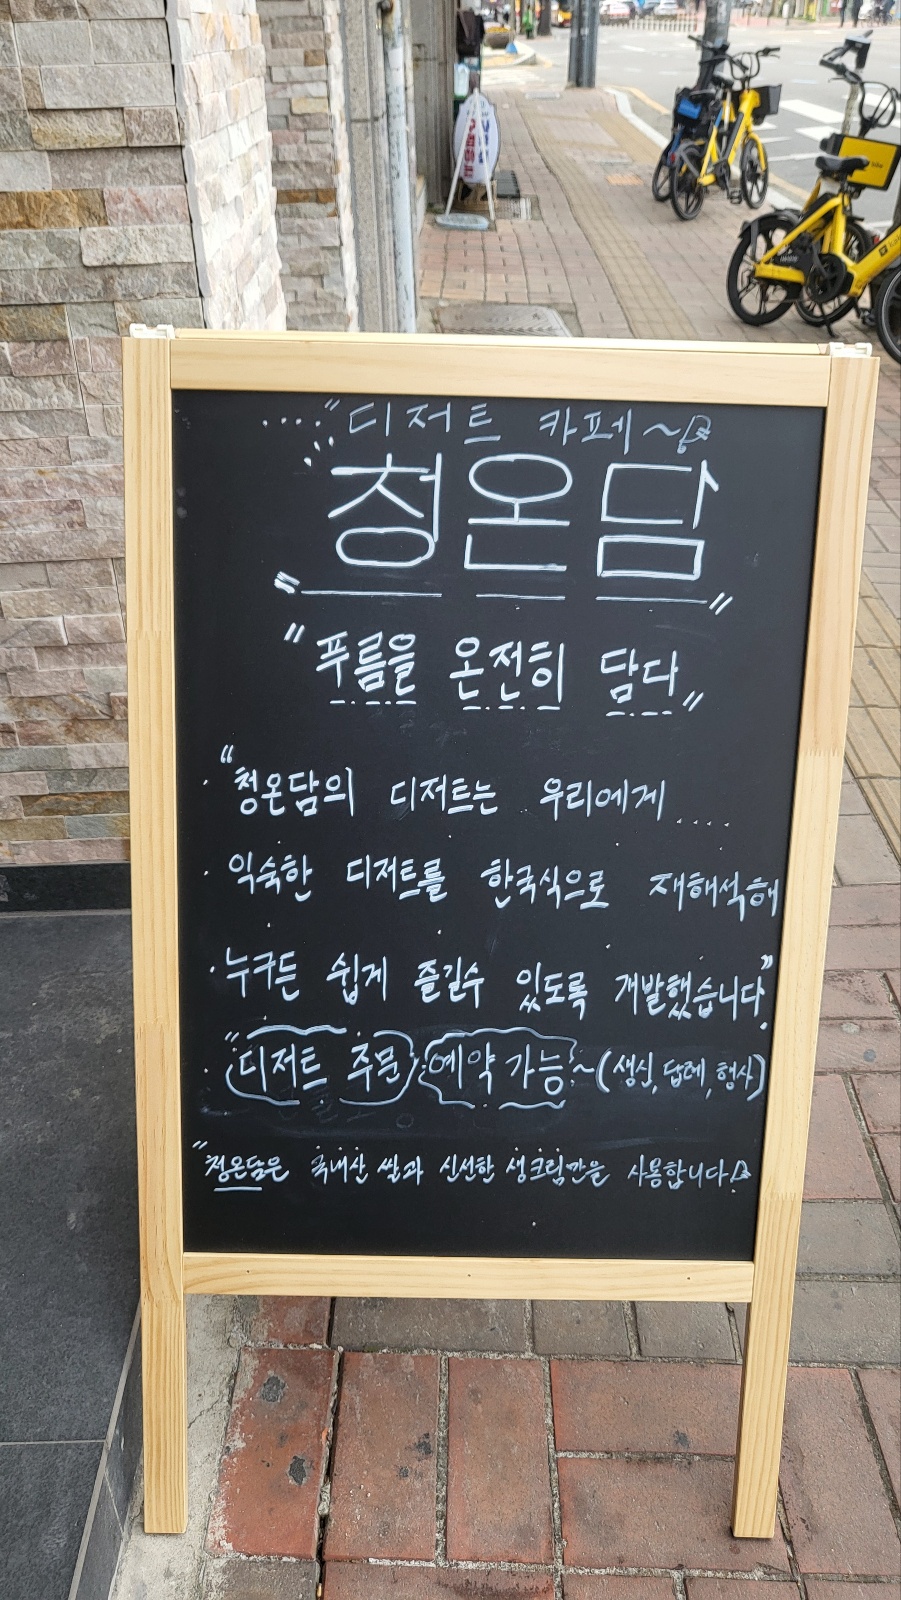 디저트 카페~
청온담
"푸름을 온전히 담다"
"청온담의 디저트는 우리에게....
익숙한 디저트를 한국식으로 재해석해
누구든 쉽게 즐길수 있도록 개발했습니다"
"디저트 주문, 예약 가능~(생신, 답례, 행사)
"청온담은 국내산 쌀과 신선한 생크림만을 사용합니다!